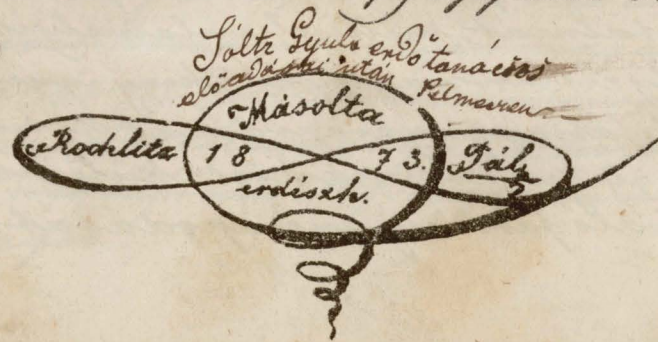 Sóltz Gyula erdő tanácsos
előadásai után Selmeczen
Másolta
Rochlitz 1873. Pál
erdészh.